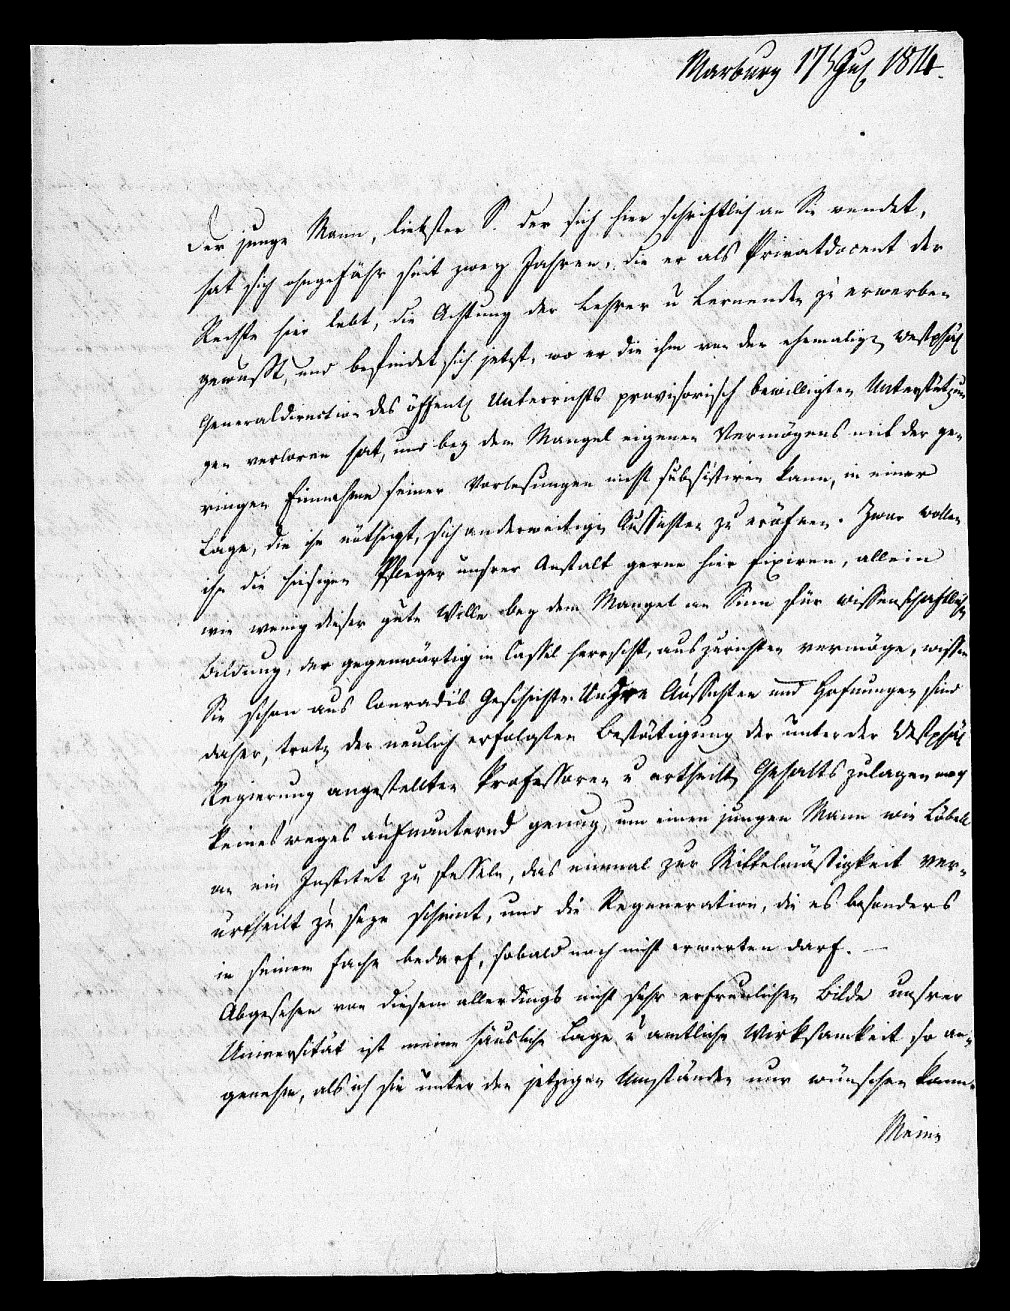 Marburg 17t Jul 1814.
Der junge Mann, liebster S. der sich hier schriftlich an Sie wendet,
hat sich ohngefähr seit zwey Jahren, die er als Privatdocent der
Rechte hier lebt, die Achtung der Lehrer u Lernenden zu erwerben
gewußt und befindet sich jetzt, wo er die ihm von der ehemaligen Westphäl
Generaldirection des öffentl Unterrichts provisorisch bewilligten Unterstützun
gen verloren hat, und bey dem Mangel eigenen Vermögens mit der ge-
ringen Einnahme seiner Vorlesungen nicht subsistiren kann, in einer
Lage, die ihn nöthigt, sich anderweitige Aussichten zu eröfnen. Zwar wollen
ihn die hiesigen Pfleger unsrer Anstalt gerne hier fixiren, allein
wie wenig dieser gute Wille bey dem Mangel an Sinn für wissenschaftliche
Bildung, der gegenwärtig in Cassel herrscht, auszurichten vermöge, wissen
Sie schon aus Conradi's Geschichte. Unsre Aussichten und Hofnungen sind
daher, trotz der neulich erfolgten Bestätigung der unter der Westphäl
Regierung angestellten Professoren u ertheilten Gehaltszulagen noch
keinesweges aufmunternd genug, um einen jungen Mann wie Löbell
an ein Institut zu fesseln, das einmal zur Mittelmäßigkeit ver-
urtheilt zu seyn scheint, und die Regeneration, die es besonders
in seinem Fache bedarf, sobald noch nicht erwarten darf. —
Abgesehen von diesem allerdings nicht sehr erfreulichen Bilde unsrer
Universität ist meine häusliche Lage u amtliche Wirksamkeit so an-
genehm, als ich sie unter den jetzigen Umständen nur wünschen kann.
Meine